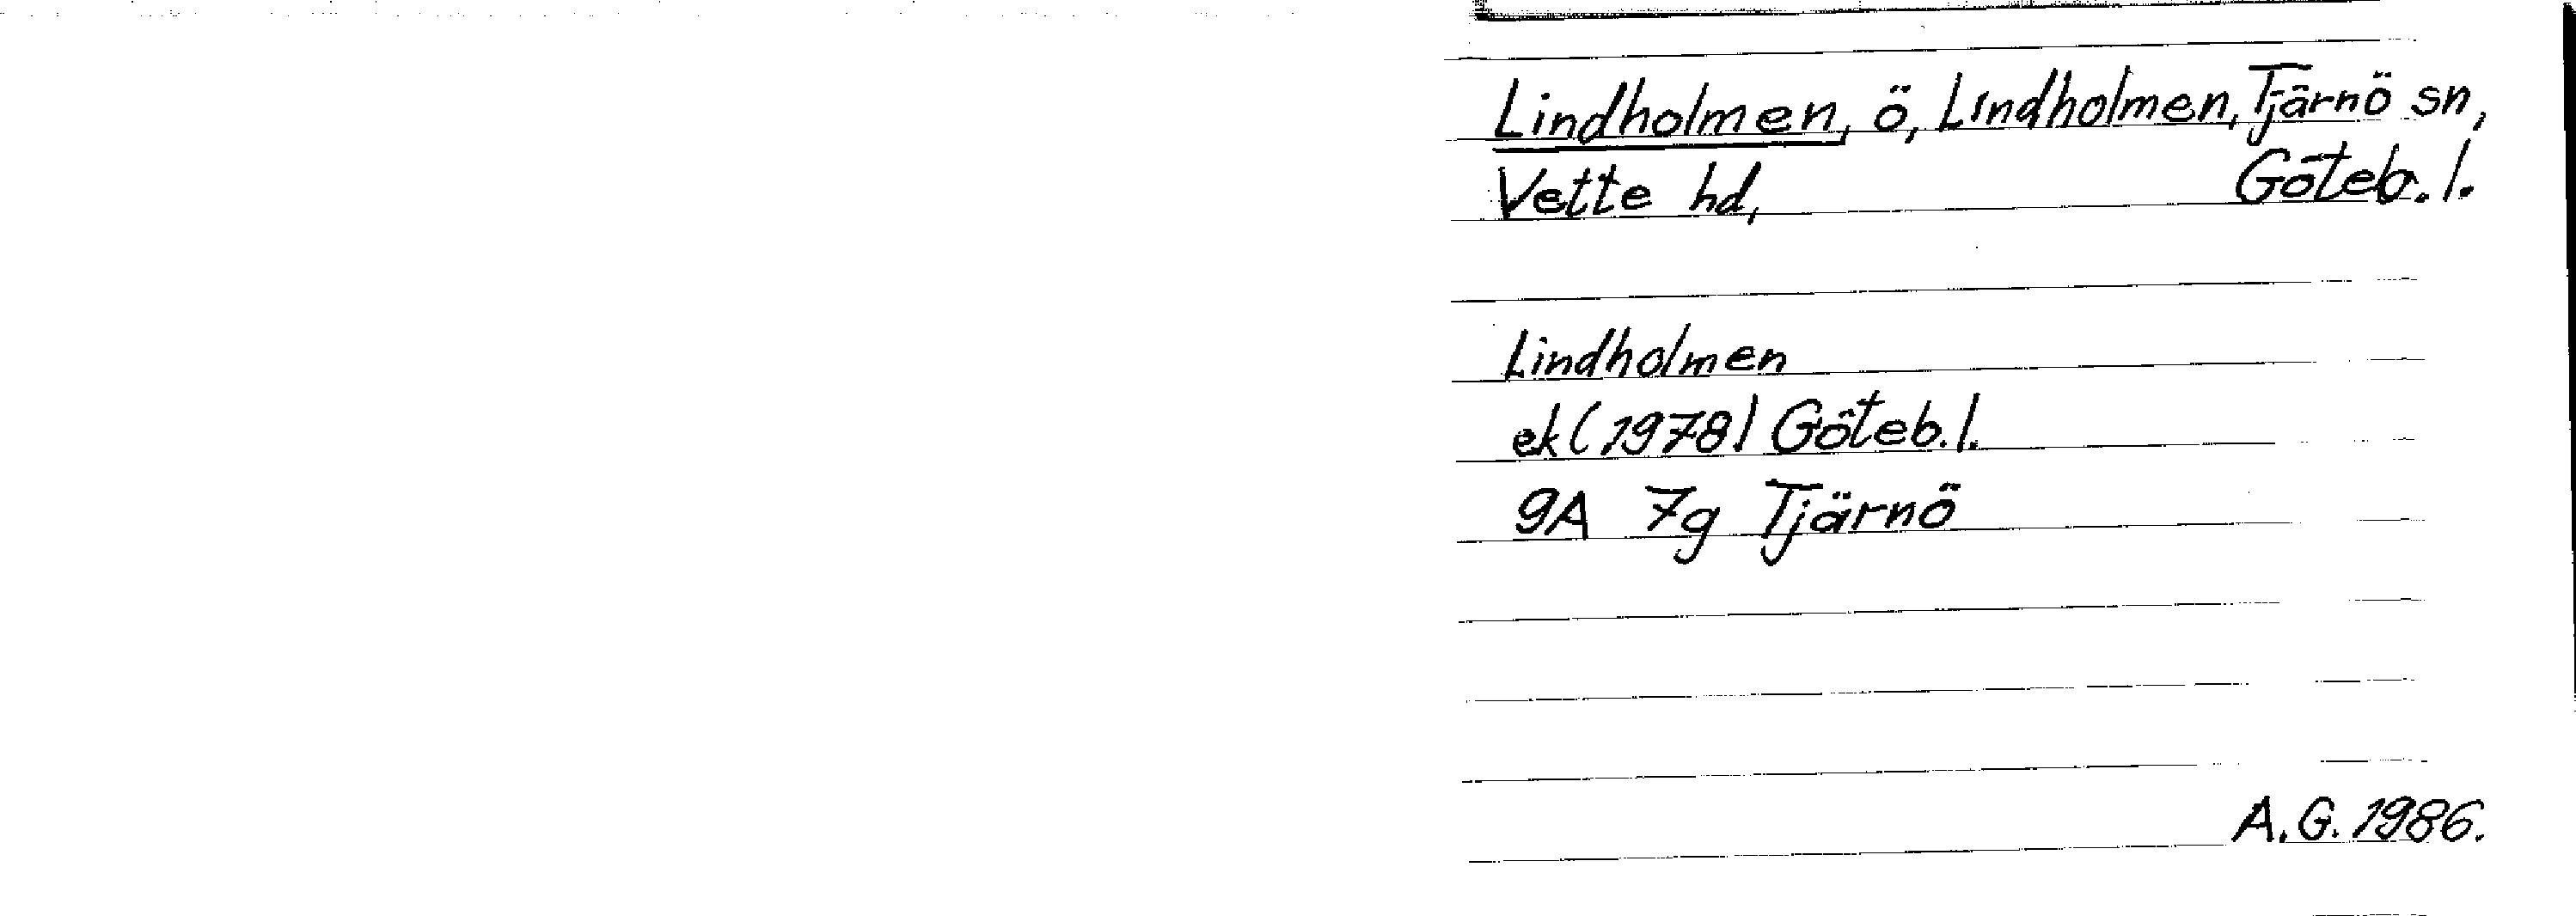 Lindholmen, ö, Lindholmen, Tjärnö sn,
Vette hd, Göteb. l.
Lindholmen
ek (1978) Göteb. l.
9A 7g Tjärnö
A. G. 1986.